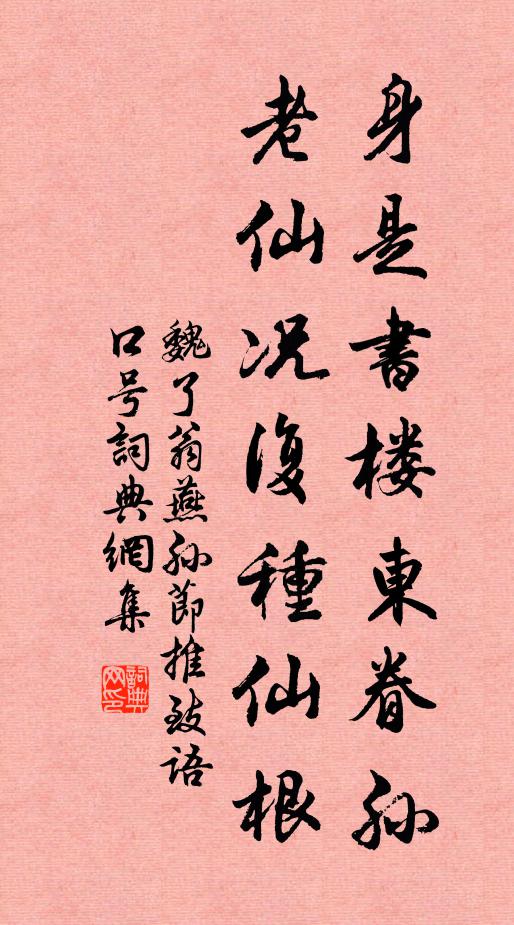 身是書楼東眷孙
老仙况復種仙根
魏了翁燕孙節推致语
口号詞典網集
詞典网印